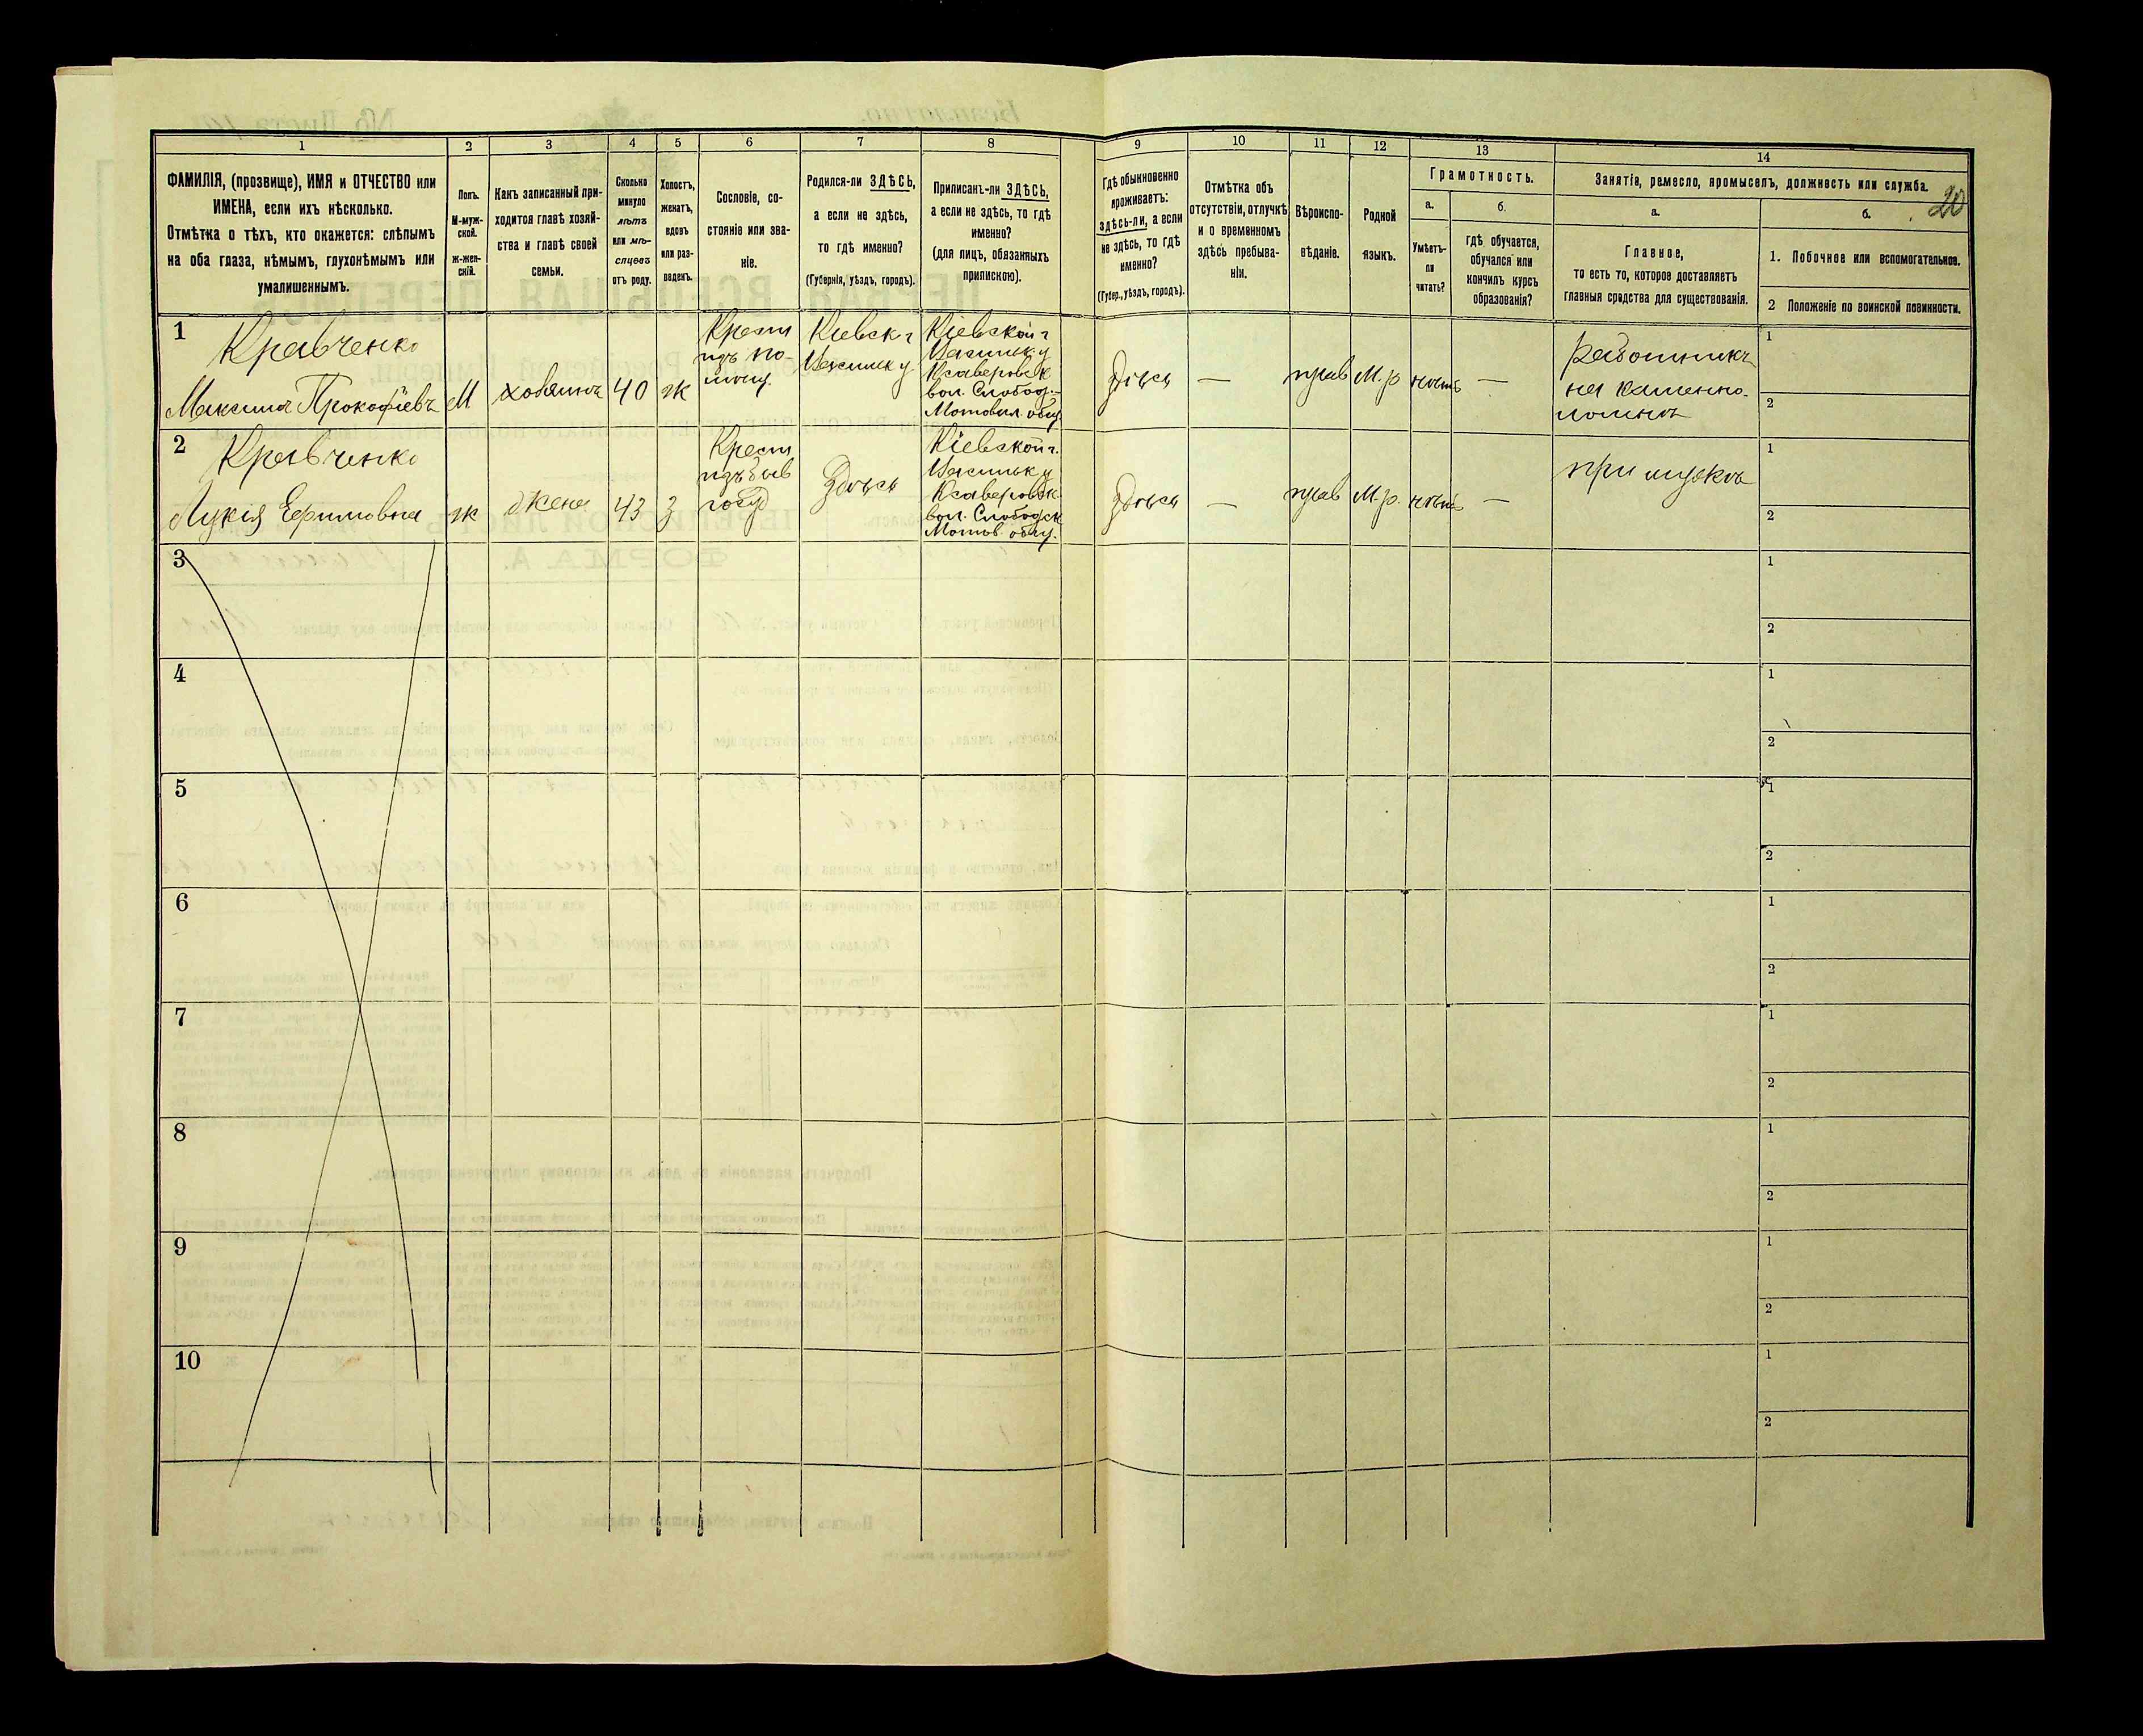 20
1 2 3 4 5 6 7 8 9 10 11 12 13 14
ФАМИЛІЯ, (прозвище), ИМЯ и ОТЧЕСТВО или
ИМЕНА, если ихъ нѣсколько.
Отмѣтка о тѣхъ, кто окажется: слѣпымъ
на оба глаза, нѣмымъ, глухонѣмымъ или
умалишеннымъ.
Полъ.
М-муж-
ской.
Ж-жен-
скій.
Какъ записанный при-
ходится главѣ хозяй-
ства и главѣ своей
семьи.
Сколько
минуло
лѣтъ
или мѣ-
сяцевъ
отъ роду.
Холостъ,
женатъ,
вдовъ
или раз-
веденъ.
Сословіе, со-
стояніе или зва-
ніе.
Родился-ли ЗДѢСЬ,
а если не здѣсь,
то гдѣ именно?
(Губернія, уѣздъ, городъ).
Приписанъ-ли ЗДѢСЬ,
а если не здѣсь, то гдѣ
именно?
(для лицъ, обязанныхъ
припискою).
Гдѣ обыкновенно
проживаетъ:
здѣсь-ли, а если
не здѣсь, то гдѣ
именно?
(Губер., уѣздъ, городъ).
Отмѣтка объ
отсутствіи, отлучкѣ
и о временномъ
здѣсь пребыва-
ніи.
Вѣроиспо-
вѣданіе.
Родной
языкъ.
Грамотность.
а.
Умѣетъ-
ли
читать?
б.
гдѣ обучается,
обучался или
кончилъ курсъ
образованія?
Занятія, ремесло, промыселъ, должность или служба.
а.
Главное,
то есть то, которое доставляетъ
главныя средства для существованія.
б.
1. Побочное или вспомогательное.
2 Положеніе по воинской повинности.
1
Кравченко
Максимъ Прокофіевъ
М
хозяинъ
40
ж
Крест
изъ по-
мѣщ.
Кіевск г
Васильк у.
Кіевской г
Васильк. у
Ксаверовск
вол. Слобод.-
Мотовил. общ.
Здѣсь
—
прав
М. р
нѣтъ
—
Работникъ
на каменно-
ломнѣ
1
2
2
Кравченко
Лукія Ефимовна
ж
жена
43
З
Крест
изъ быв
госуд
Здѣсь
Кіевской г.
Васильк у
Ксаверовск
вол. Слободск
Мотов. общ.
Здѣсь
—
прав
М. р.
нѣтъ
—
при мужѣ
1
2
3
1
2
4
1
2
5
1
2
6
1
2
7
1
2
8
1
2
9
1
2
10
1
2